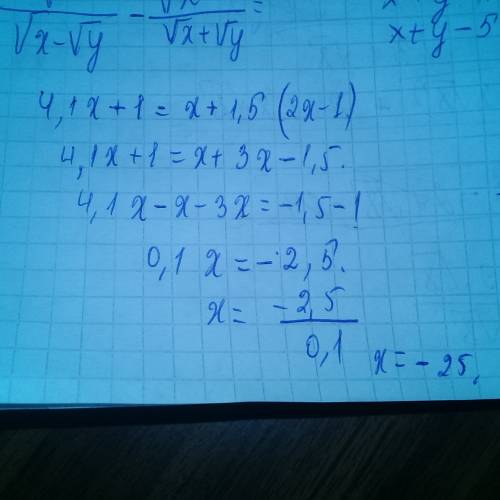 √x-√y - √x+√y =
x+y-5
4,1x+1 = x+1,5(2x-1)
4,1x+1 = x+3x-1,5.
4,1x-x-3x = -1,5-1
0,1 x = -2,5.
x = -2,5/0,1 x = -25.